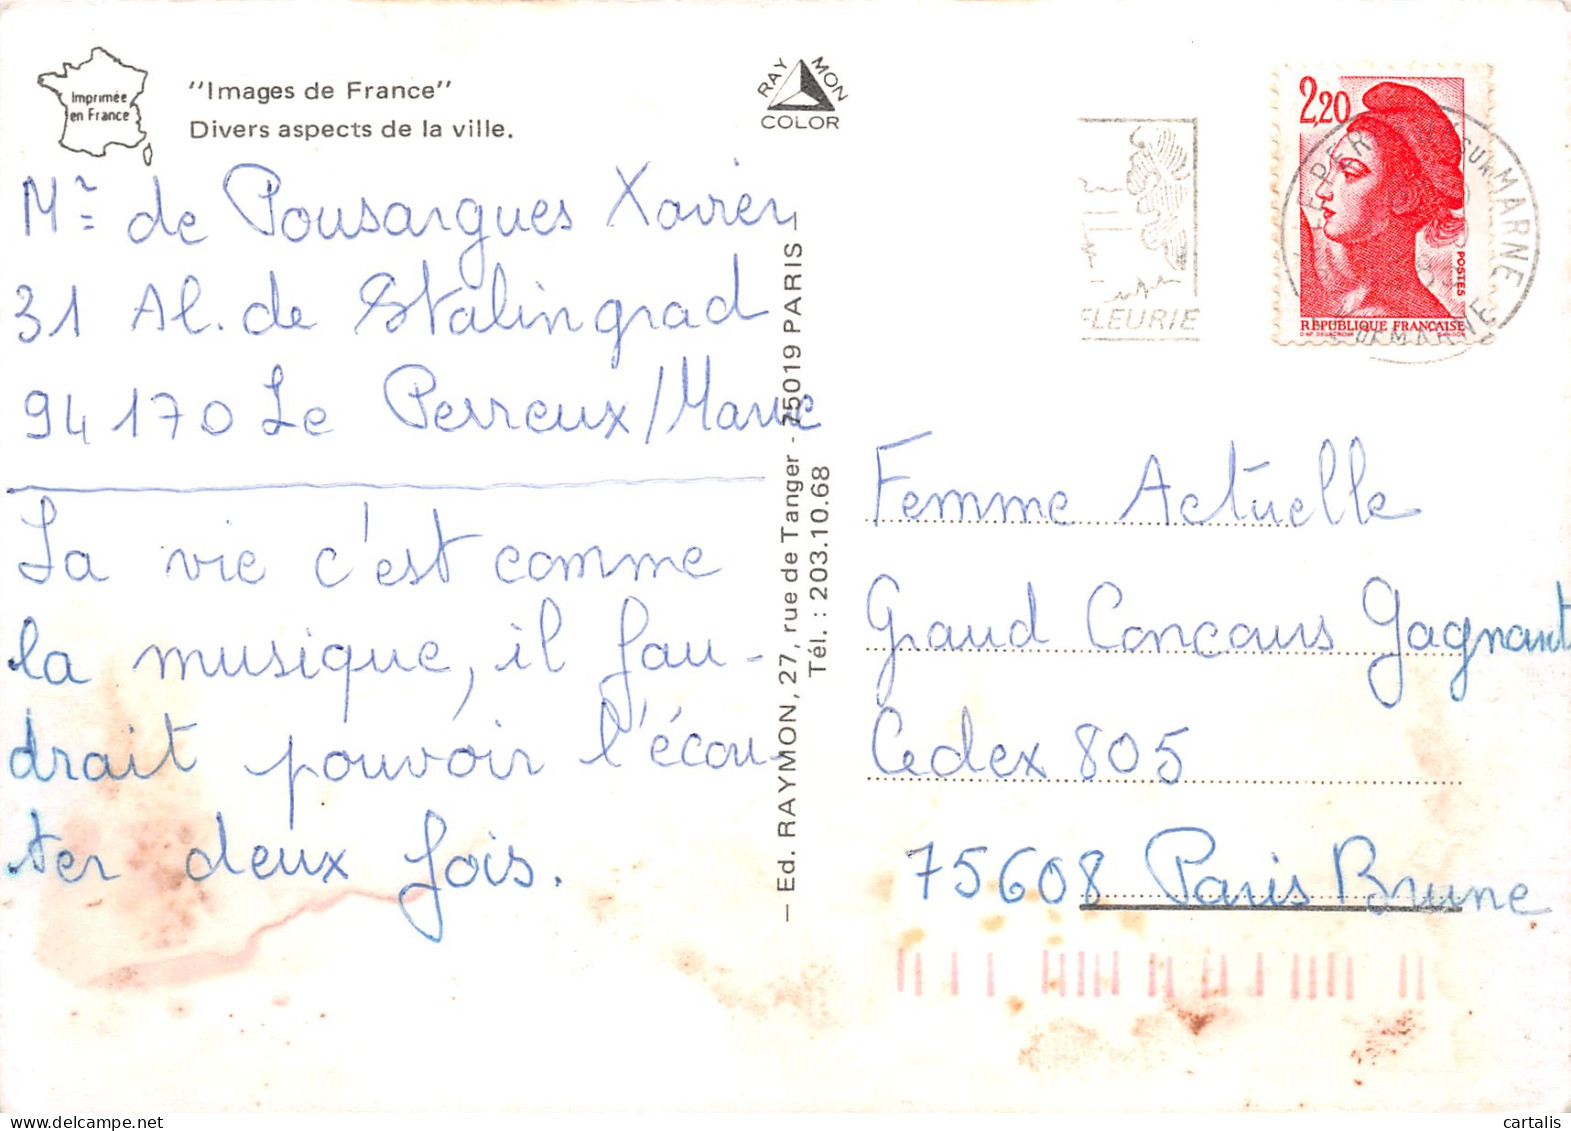 Imprimée
en France
"Images de France"
Divers aspects de la ville.
RAYMON
COLOR
Mr de Pousargues Xavier
31 Al. de Stalingrad
94170 Le Perreux/Marne
La vie c'est comme
la musique, il fau-
drait pouvoir l'écou-
ter deux fois.
— Ed. RAYMON, 27, rue de Tanger - 75019 PARIS —
Tél. : 203.10.68
FLEURIE
2,20
POSTES
RÉPUBLIQUE FRANÇAISE
SUR MARNE
DE MARNE
Femme Actuelle
Grand Concours Gagnant
Cedex 805
75608 Paris Brune
Copyright © cartalis
www.delcampe.net
cartalis